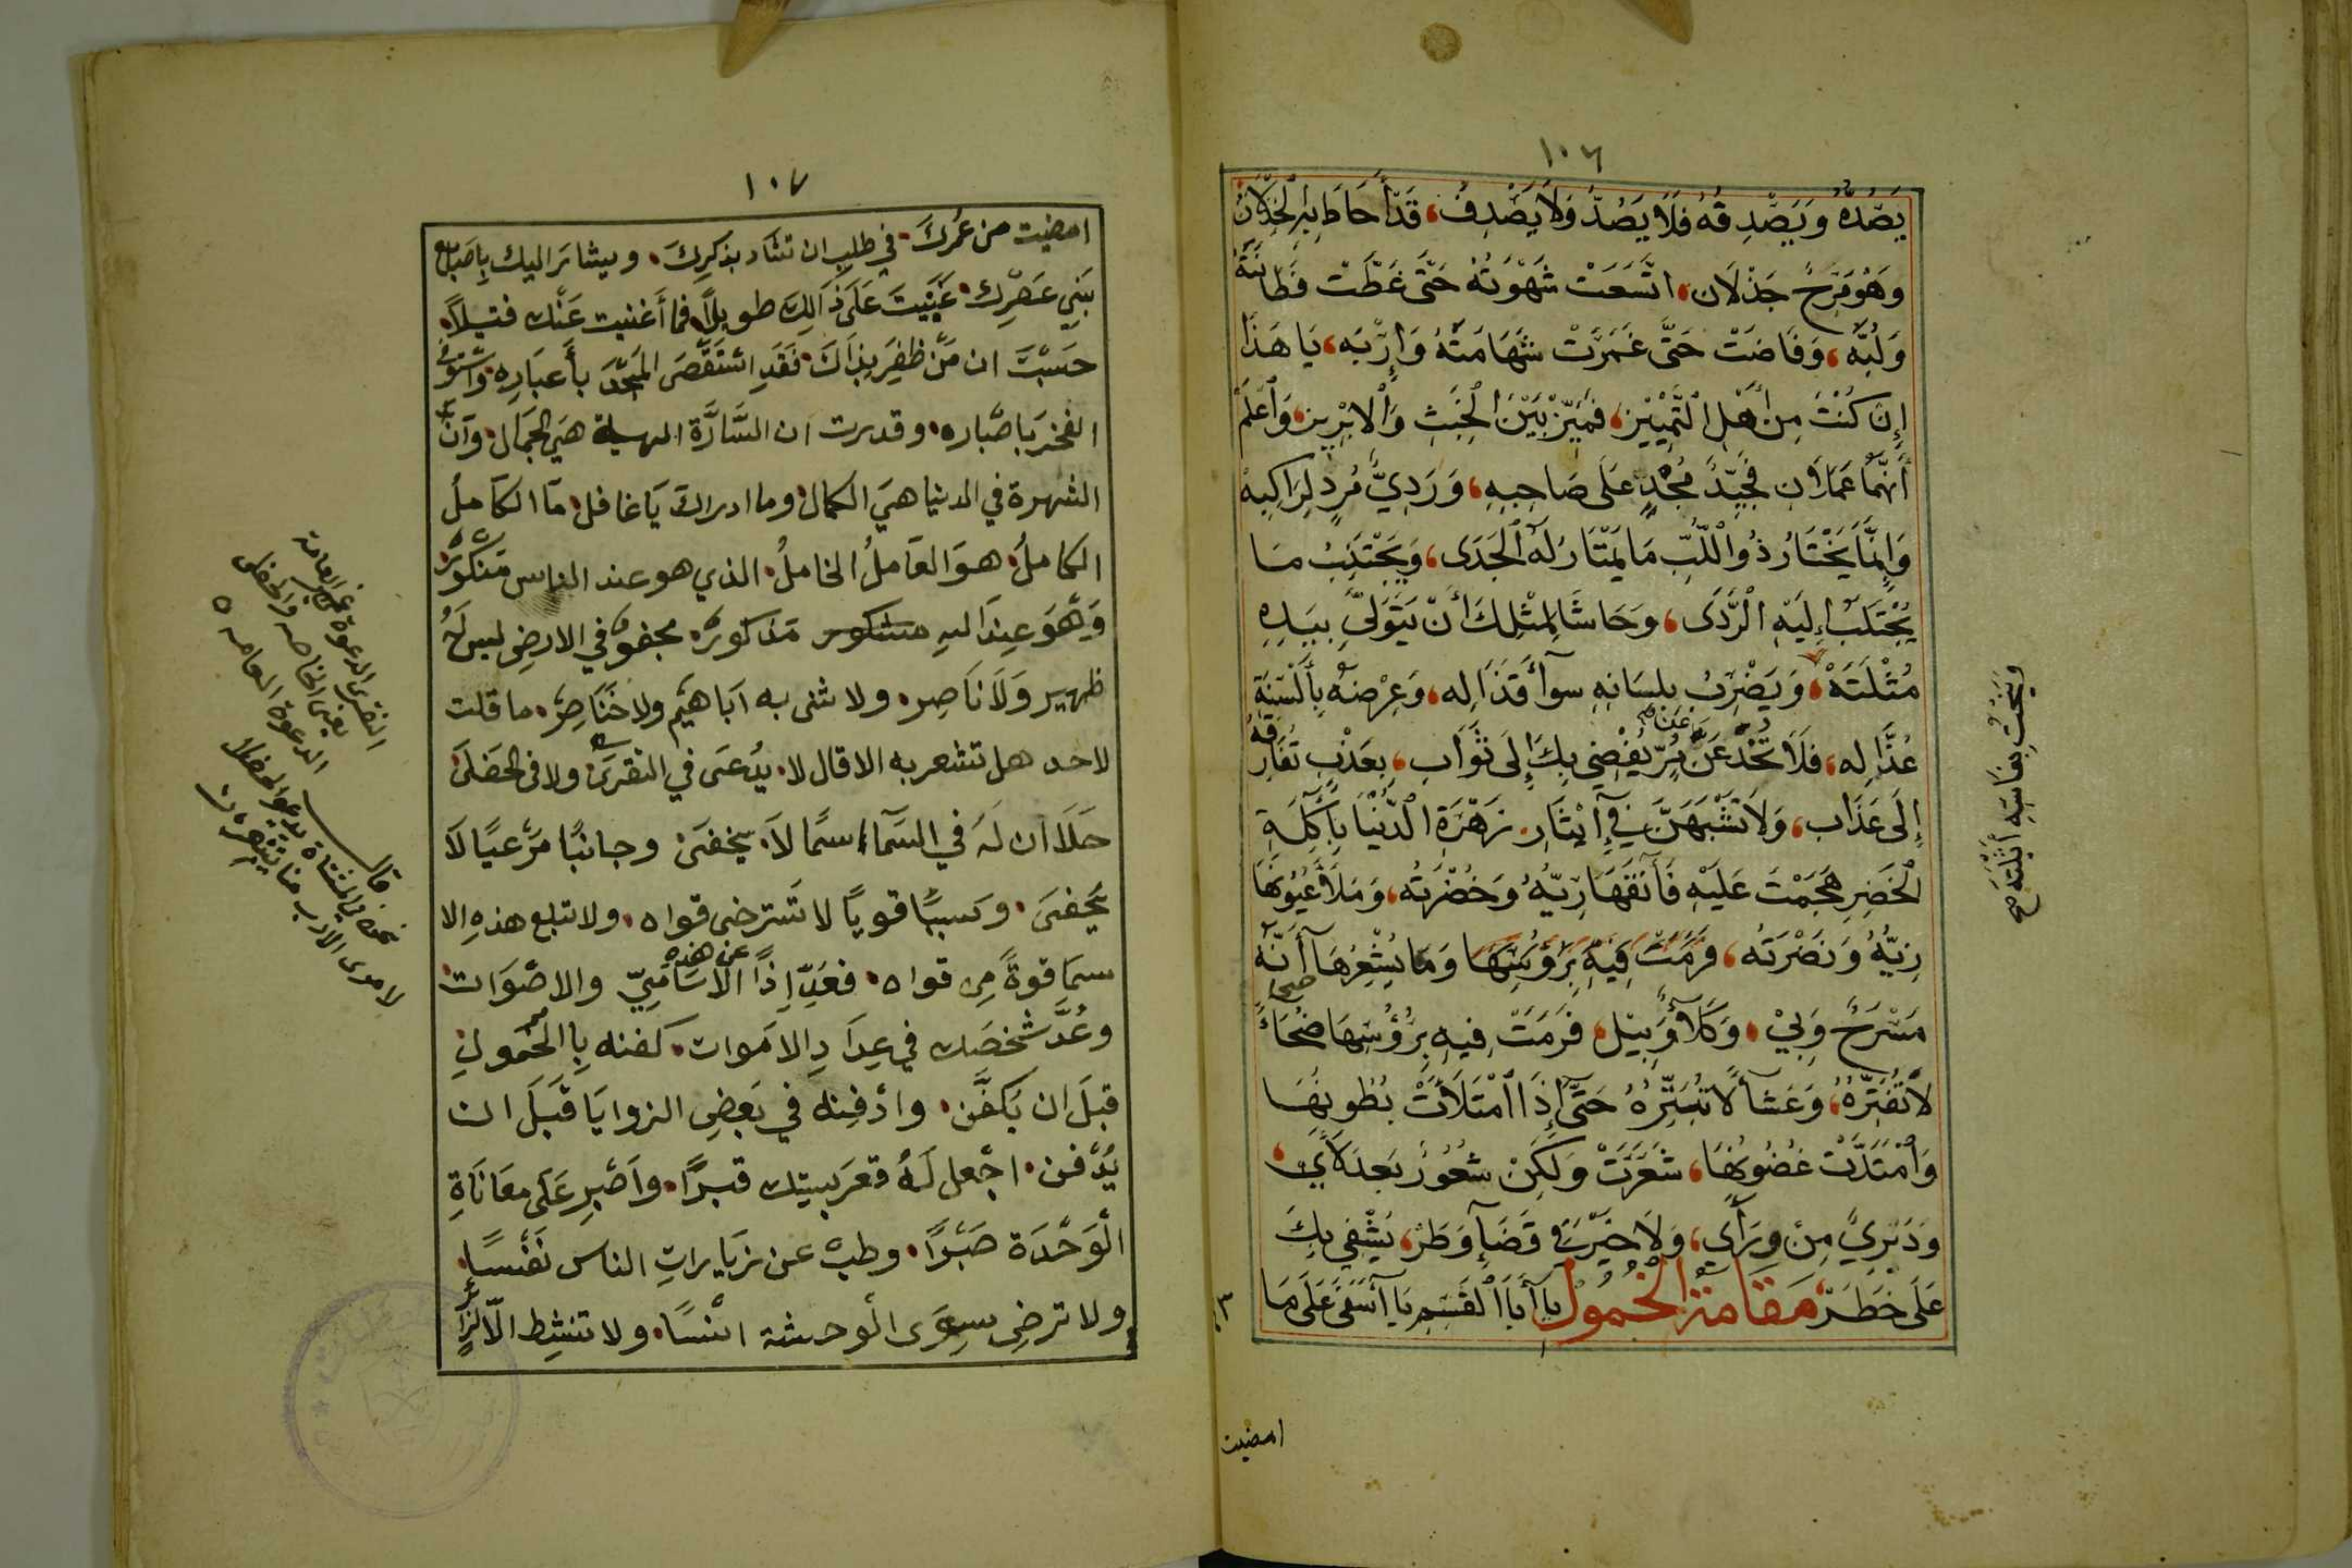 ١٠٦
يَصُدُّهُ وَيَصْدِفُهُ فَلَا يَصُدُّ وَلَا يَصْدِفُ، قَدْ أَحَاطَ بِهِ الْخِذْلَانُ
وَهُوَ فَرِحٌ جَذْلَان، اتَّسَعَتْ شَهْوَتُهُ حَتَّى غَطَّتْ فَطَانَتَهُ
وَلُبَّه، وَفَاضَتْ حَتَّى غَمَرَتْ شَهَامَتَهُ وَإِرْبَه، يَا هَذَا
إِنْ كُنْتَ مِنْ أَهْلِ التَّمْيِيْزِ، فَمَيِّزْ بَيْنَ الْخَبَثِ وَالْابْرِيزِ، وَاعْلَمْ
أَنَّهُمَا عَمَلَان فَجَيِّدٌ مُجْدٍ عَلَى صَاحِبِهِ، وَرَدِيٌّ مُرْدٍ لِرَاكِبِهْ
وَإِنَّمَا يَخْتَارُ ذُو الْلُّبِّ مَا يَمْتَارُ لَهُ الْجَدَى، وَيَجْتَنِبُ مَا
يَجْتَلِبُ إِلَيْهِ الْرَّدَى، وَحَاشَا لِمِثْلِكَ أَنْ يَتَوَلَّى بِيَدِهِ
مُثْلَتَهْ، وَيَضْرِبُ بِلِسَانِهِ سَوْأَ قَذَالِه، وَعِرْضَهُ بِأَلْسِنَةِ
عُذَّالِه، فَلَا تَحْدْ عَنْ بِرٍّ يُفْضِي بِكَ إِلَى ثَوَابِ، بِعَذْبٍ تُفَارِقُهُ
إِلَى عَذَاب، وَلَا تَشَبَّهَنَّ فِي إِيْثَارِ زَهْرَةِ الدُّنْيَا بِآكِلَةِ
الْخَضِرِ هَجَمْتَ عَلَيْهِ فَآنَقَهَا رِيُّهُ وَخُضْرَتُه، وَمَلَأَ عُيُونَهَا
زِيُّهُ وَنَضْرَتُه، فَرَمَتْ فِيْهِ بِرُؤُسِهَا وَمَا يُشْعِرُهَا أَنَّهُ
مَسْرَحٌ وَبِيْ، وَكَلَأٌ وَبِيْل، فَرَمَتْ فِيهِ بِرُؤُسِهَا ضُحَاءً
لَا تُفَتِّرُهُ، وَعَشَاً لَا تُبَتِّرُهُ حَتَّى إِذَا امْتَلَأَتْ بُطُونُهَا
وَامْتَدَّتْ غُضُونُهَا، شَعَرَتْ وَلَكِنْ شُعُورٌ بَعْدَ لَأْيٍ،
وَدَبَرِيٌّ مِنْ وَرَأْيٍ، وَلَا خَيْرَ فِي قَضَاءِ وَطَرْ، يُشْفِي بِكَ
عَلَى خَطَرْ، مَقَامَةُ الْخُمُولْ يا أَبَا الْقَسِمِ يَا آسَفَى عَلَى مَا
وَيَنْحُتُ بِفَاسِهِ أَثْلَتَهْ صح
امضيت
١٠٧
امضيت من عُمُركَ. في طلبِ ان تشاد بذكرِكَ، ويشار اليك بِاصَبابع
بَنِي عَصْرِك، عَنَّيْتَ عَلَى ذَالِكَ طويلاً، فما أَغنيت عَنْك فتيلاً،
حَسِبْتَ ان مَنْ ظفِرَ بذاكَ، فقَدِ اسْتَقْصَى المَجْدَ بأَعبَارِه، واسْتَوفى
الفخرَ بَاصْباره، وقدرت ان الشَّارَة البهية هيَ الجمَال، وَانَّ
الشهرة في الدنيا هيَ الكمال، وما ادراك يَا غافل، مَا الكَاملُ
الكاملُ، هوَ العَاملُ الخاملُ، الذي هو عند الناس مَنكورٌ،
وَهُوَ عِندَ اللهِ مذكورٌ، مجفوٌّ في الارضِ ليسَ لهُ
ظهير وَلَا نَاصِر، ولا ثنى به ابَاهيم ولا خَنَاصِرُ، ما قلت
لاحد هل تشعر به الا قال لا، يدُعى في النقرَى ولا في الجَفلَى
خَلَا ان لهَ في السَّمآء اسمًا لاَ يخفَى وجانبًا مَرْعيًا لَا
يَجفى، وسببًا قويًا لا تَسترخى قواه، ولا تبلع هذِهِ الا
سمَا قوةً مِن قواه، فعَدِّ اِذًا عن هذه الاسَامِيّ والاصْوَات،
وعُدَّ شخصَك في عِدَادِ الامَوات، كفنه بِالخمُولِ
قبلَ ان يَكفَّن، وادْفِنه في بَعضِ الزوايَا قبَلَ ان
يُدْفن، اجْعل لَهُ قعرَ بيتِك قبرًا، واصْبِر عَلَى معَانَاةِ
الْوَحْدَة صَبْرًا، وطبْ عن زيَاراتِ الناس نَفْسًا،
ولا ترضِ سِوَى الْوحشة انْسًا، ولا تنشِط الّا لزائرٍ
النقرى الدعوة غير العامة
يعنى الخاصه والجفلى
الدعوة العامه ٥
قال
نحن في المشتاة ندعوا الجفلى
لا ترى الآدب منا ينتقر